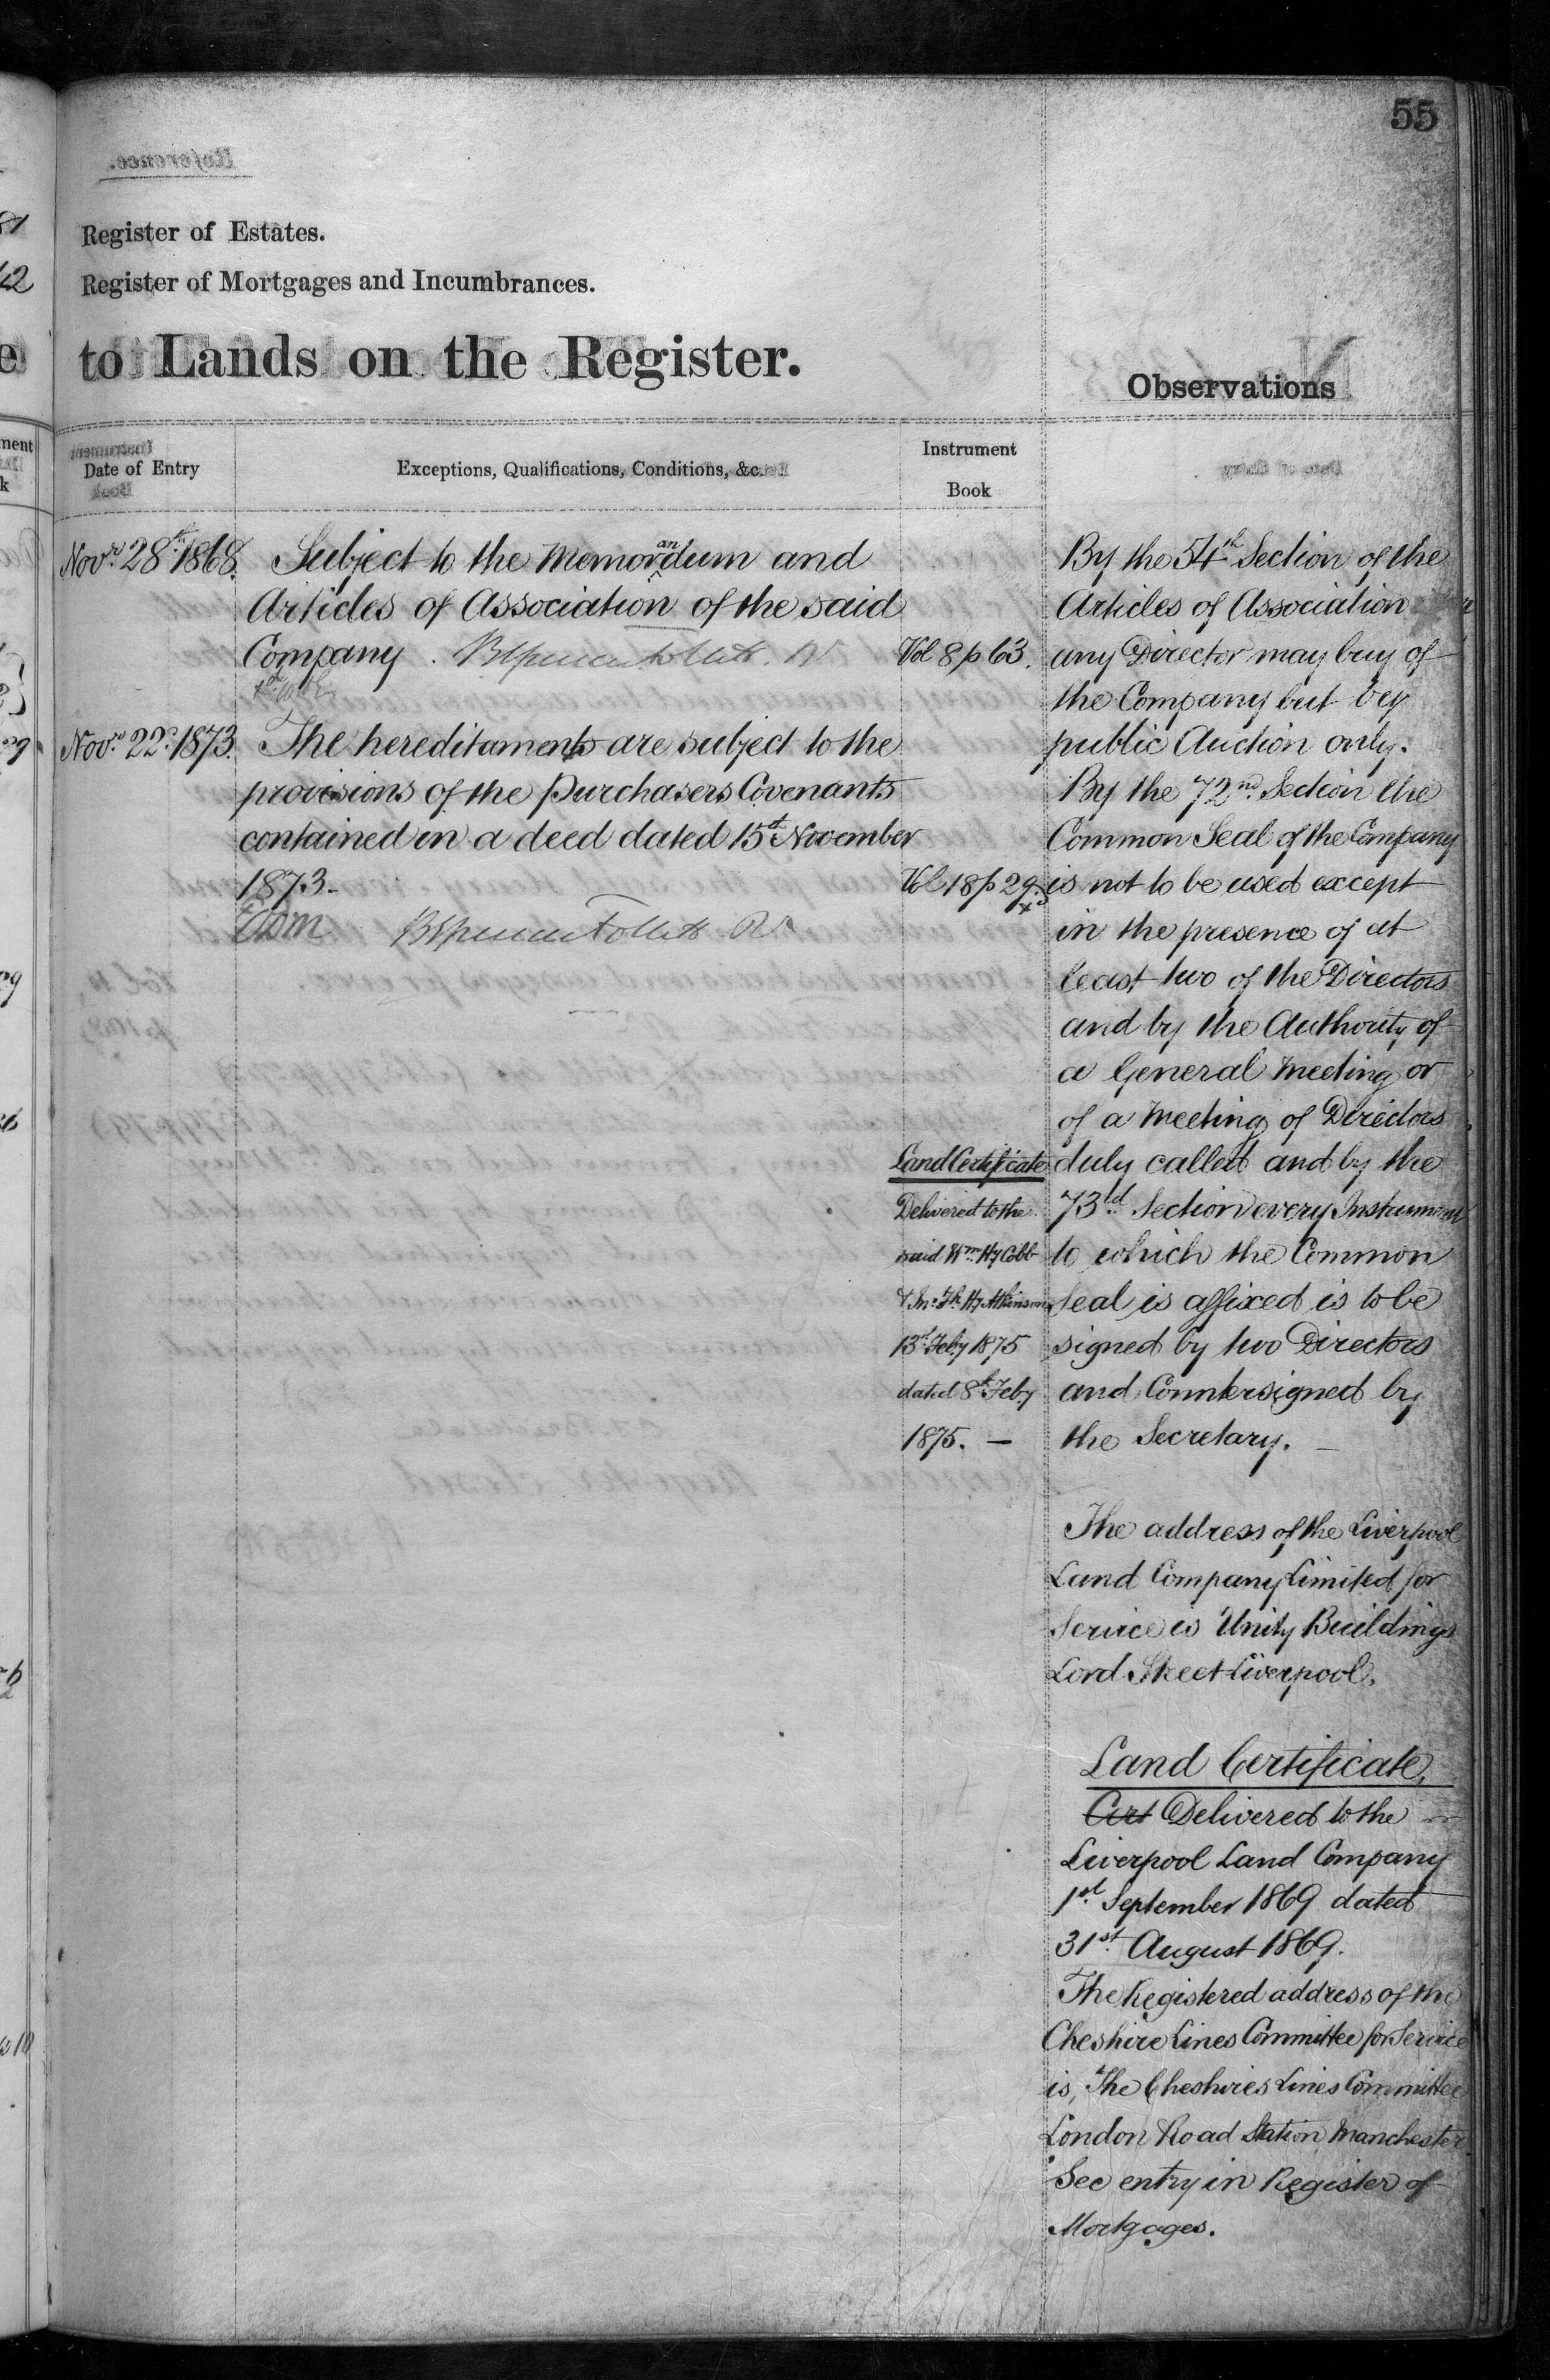 55
Register of Estates.
Register of Mortgages and Incumbrances.
to Lands on the Register.
Observations
Date of Entry
Exceptions, Qualifications, Conditions, &c.
Instrument
Book
Novr 28th 1868.
Subject to the Memorandum and
Articles of Association of the said
Company.
Vol 8 p 63.
Novr 22d 1873.
The hereditaments are subject to the
provisions of the Purchasers Covenants
contained in a deed dated 15th November
1873.
Vol 18 p 29.
Land Certificate
Delivered to the
said Wm. Hy Cobb
& Jno. Fk. Hy Atkinson
13th Feby 1875
dated 8th Feby
1875. —
By the 54th Section of the
Articles of Association
any Director may buy of
the Company but by
public Auction only.
By the 72nd Section the
Common Seal of the Company
is not to be used except
in the presence of at
least two of the Directors
and by the Authority of
a General Meeting or
of a Meeting of Directors
duly called and by the
73rd Section every Instrument
to which the Common
Seal is affixed is to be
signed by two Directors
and Countersigned by
the Secretary. —
The address of the Liverpool
Land Company Limited for
Service is Unity Buildings
Lord Street Liverpool.
Land Certificate,
Cert Delivered to the
Liverpool Land Company
1st September 1869 dated
31st August 1869.
The Registered address of the
Cheshire Lines Committee for Service
is, The Cheshires Lines Committee
London Road Station Manchester.
See entry in Register of
Mortgages.